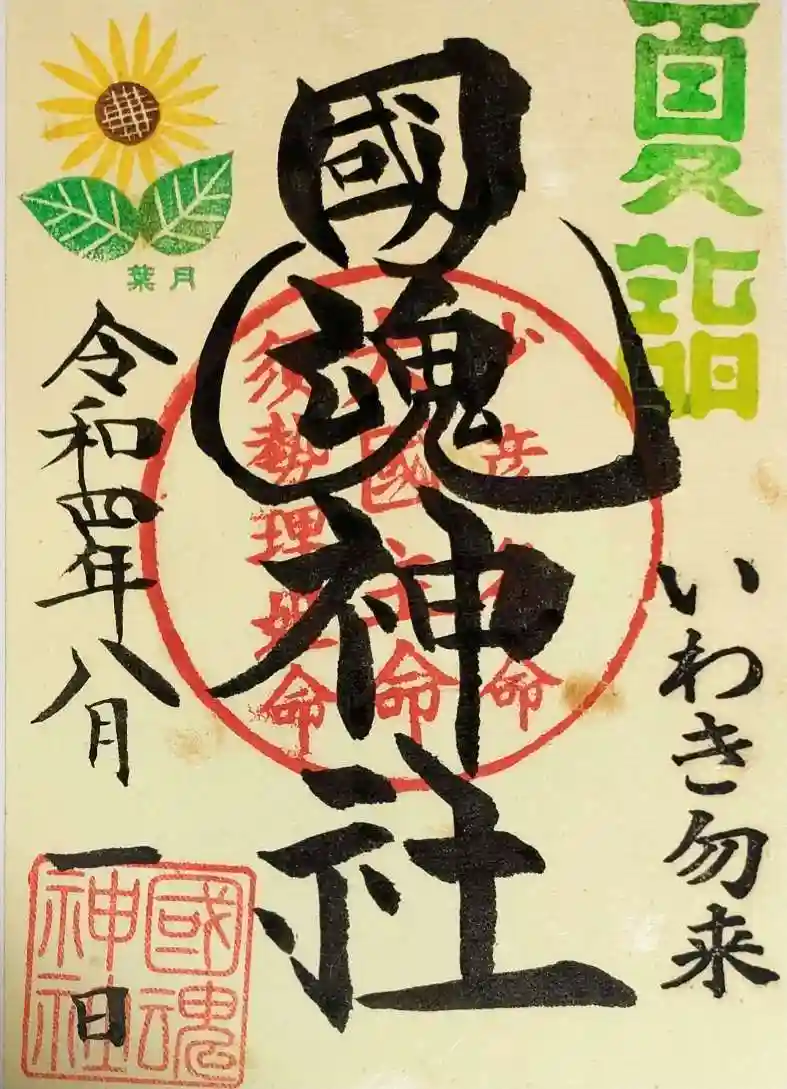 夏詣
いわき勿来
國魂神社
少彦名命
大國主命
須勢理毘命
葉月
令和四年八月一日
國魂
神社